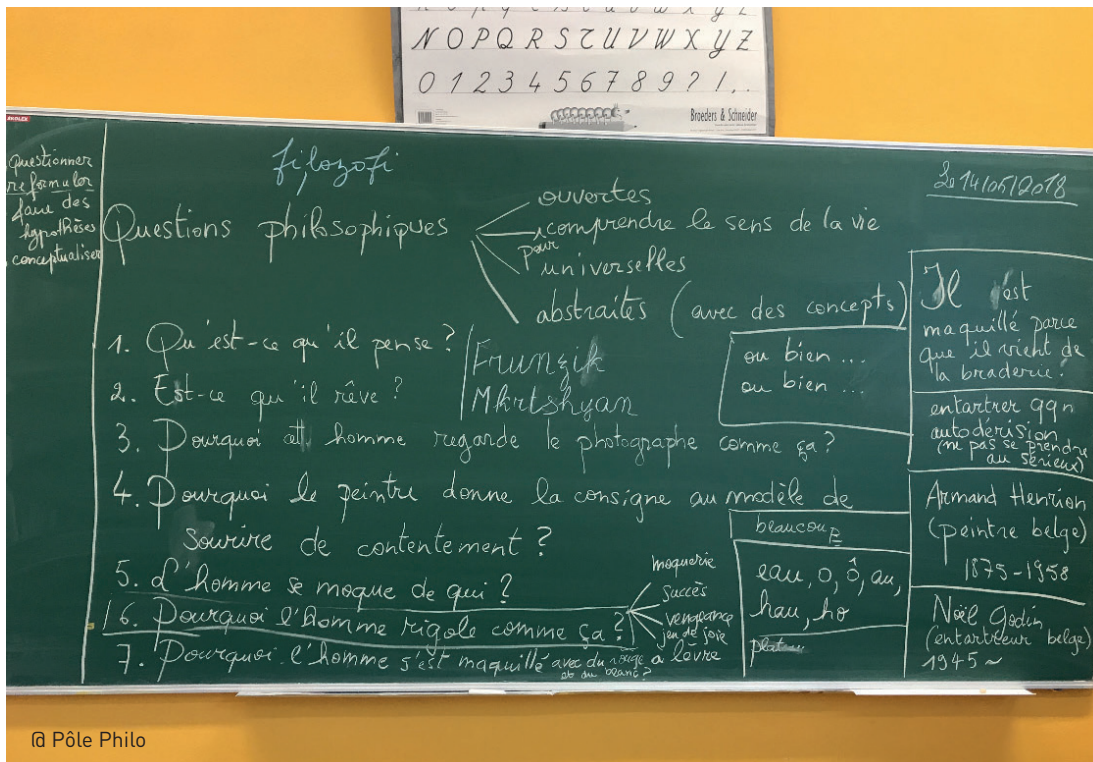 N O P Q R S T U V W X Y Z
0 1 2 3 4 5 6 7 8 9 ? ! . .
Broeders & Schneider
Questionner
reformuler
faire des
hypothèses
conceptualiser
filozofi
Le 14/05/2018
Questions philosophiques
ouvertes
comprendre le sens de la vie
pour
universelles
abstraites (avec des concepts)
1. Qu'est-ce qu'il pense ?
2. Est-ce qu'il rêve ?
Frunzik
Mkrtshyan
3. Pourquoi cet homme regarde le photographe comme ça ?
4. Pourquoi le peintre donne la consigne au modèle de
sourire de contentement ?
5. L'homme se moque de qui ?
6. Pourquoi l'homme rigole comme ça ?
moquerie
succès
vengeance
jeu de joie
7. Pourquoi l'homme s'est maquillé avec du rouge à lèvre
et du blanc ?
ou bien ...
ou bien ...
beaucoup
eau, o, ô, au,
hau, ho
plateau
Il s'est
maquillé parce
que il vient de
la braderie !
entartrer qqn
autodérision
(ne pas se prendre
au sérieux)
Armand Henrion
(peintre belge)
1875-1958
Noël Godin
(entartreur belge)
1945 ~
@ Pôle Philo